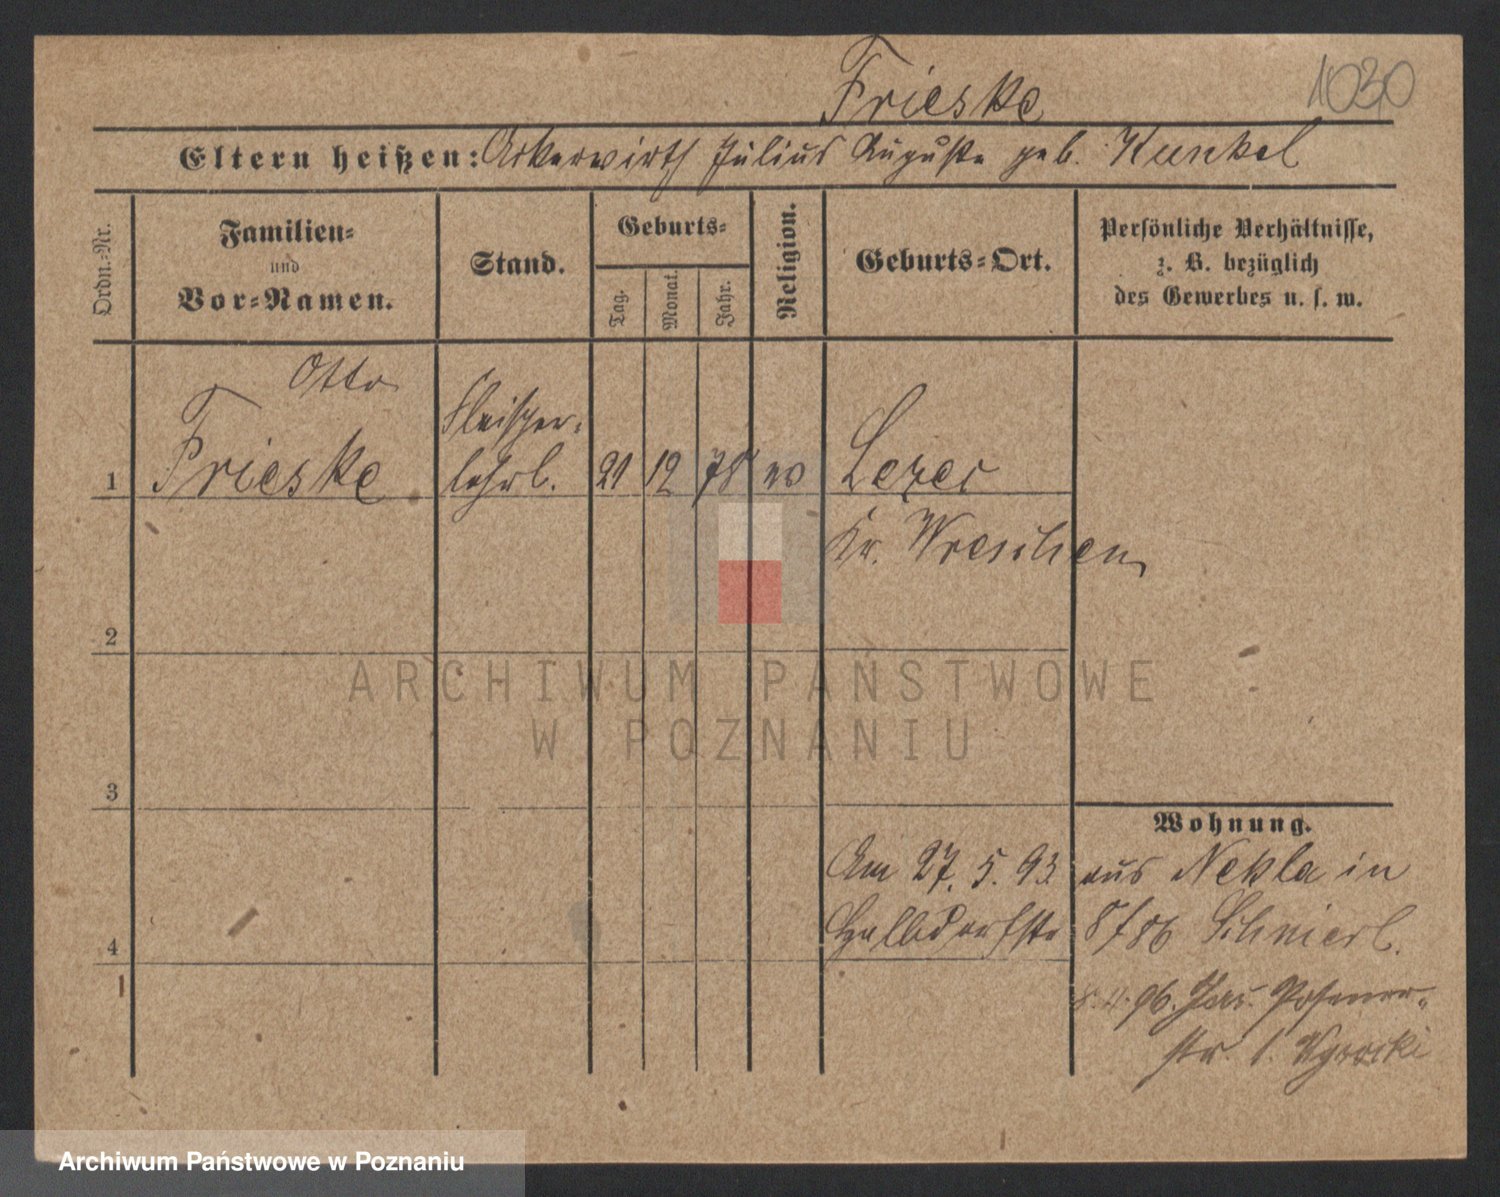 Frieske
1030
Eltern heißen: Ackerwirth Julius Auguste geb. Kunkel
Ordn.-Nr.
Familien-
und
Vor-Namen.
Stand.
Geburts-
Tag.
Monat.
Jahr.
Religion.
Geburts-Ort.
Persönliche Verhältnisse,
z. B. bezüglich
des Gewerbes u. s. w.
Otto
Fleischer-
1 Frieske lehrl. 21 12 78 ev
Kr. Wreschen
2
ARCHIWUM PAŃSTWOWE
W POZNANIU
3
Wohnung.
Am 27. 5. 93 aus Nekla in
4 Halbdorfstr 8/86
96. Posener-
str. 1.
Archiwum Państwowe w Poznaniu